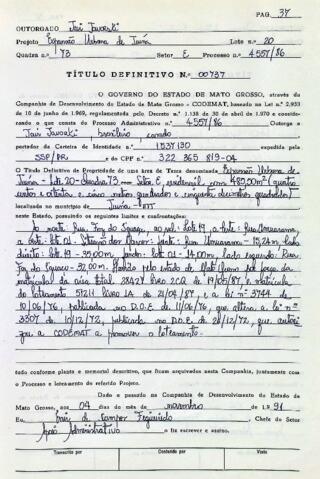 PAG. 37
OUTORGADO Jair Javorski
Projeto Expansão Urbana de Juína Lote n.º 20
Quadra n.º 73 Setor E Processo n.º 4557/86
TÍTULO DEFINITIVO N.º 00737
O GOVERNO DO ESTADO DE MATO GROSSO, através da
Companhia de Desenvolvimento do Estado de Mato Grosso - CODEMAT, baseado na Lei n.º 2.933
de 10 de junho de 1969, regulamentado pelo Decreto n.º 1.138 de 30 de abril de 1970 e considerando
o que consta do Processo Administrativo n.º 4557/86 Outorga a
Jair Javorski, brasileiro, casado
portador da Carteira de Identidade n.º 1537130 expedida pela
SSP/PR e do CPF n.º 322 365 819-04
O Título Definitivo de Propriedade de uma área de Terra denominada Expansão Urbana de
Juína - Lote 20 - Quadra 73 - Setor E, residencial com 485,50m² (quatro
centos e oitenta e cinco metros quadrados e cinquenta decímetros quadrados)
localizada no município de Juína - MT
neste Estado, possuindo os seguintes limites e confrontações:
Ao norte Rua Foz do Iguaçu, ao sul: Lote 19, a leste: Rua
a oeste: lote 01 - frente: Rua - 15,24m, lado
direito: lote 19 - 35,00m, fundo: lote 01 - 14,00m, lado esquerdo: Rua
Foz do Iguaçu - 32,00m. Havido pelo estado de Mato Grosso por força da
matrícula da área total 28427 livro 2CQ de 19/05/87, e matrícula
do loteamento 57211 livro 1A de 21/04/87, e a lei nº 3744 de
10/06/76, publicada no D.O.E de 11/06/76, que altera a lei nº
3307 de 10/12/72, publicada no D.O.E de 28/12/72, que autoriza
a CODEMAT a promover o loteamento.
tudo conforme planta e memorial descritivo, que ficam arquivados nesta Companhia, juntamente com
o Processo e loteamento do referido Projeto.
Dado e passado na Companhia de Desenvolvimento do Estado de
Mato Grosso, aos 04 dias do mês de novembro de 1.9 91
Eu, de Campos Figueiredo Chefe do Setor
Apoio Administrativo o fiz escrever e assino.
Transcrito por Conferido por Visto